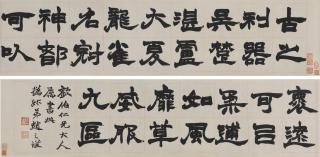 古之
利器
吳楚
湛盧
大夏
龍雀
名冠
神都
可以
褱遠
可㠯
柔逋
如風
靡草
威服
九區
伯仁兄大人
屬書
撝叔弟趙之謙